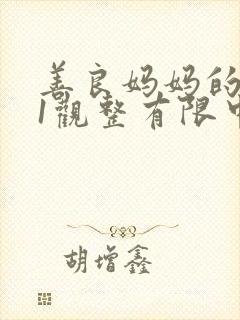 善良妈妈的
1觀整有限中
胡增鑫